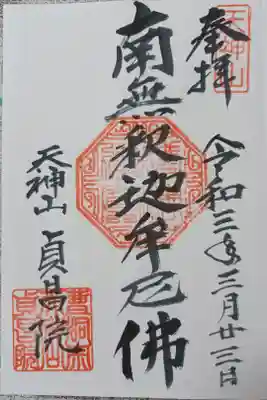 天神山
奉拝
令和三年三月廿三日
南無釈迦牟尼佛
天神山 貞昌院